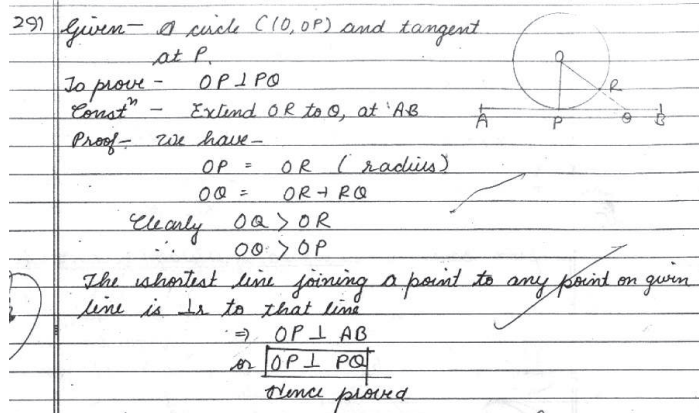 29) Given - A circle C(O, OP) and tangent
at P.
To prove - OP ⊥ PQ
Constⁿ - Extend OR to Q, at AB
Proof - We have -
OP = OR (radius)
OQ = OR + RQ
Clearly OQ > OR
∴ OQ > OP
The shortest line joining a point to any point on given
line is ⊥r to that line
⇒ OP ⊥ AB
or OP ⊥ PQ
Hence proved
O
R
A P Q B